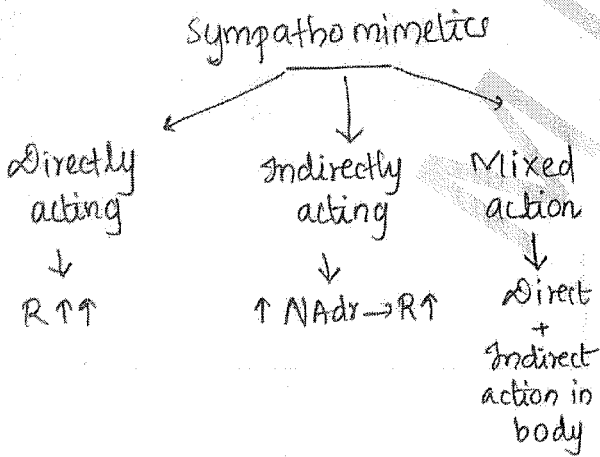 Sympathomimetics
Directly
acting
↓
R ↑↑
Indirectly
acting
↓
↑ NAdr → R↑
Mixed
action
↓
Direct
+
Indirect
action in
body